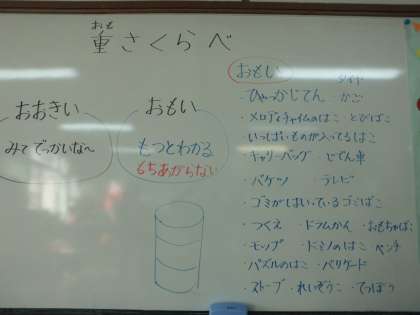 おも
重さくらべ
おおきい
みて でっかいな～
おもい
もつとわかる
もちあがらない
おもい
ひゃっかじてん ・かご
メロディチャイムのはこ ・とびばこ
いっぱいものが入ってるはこ
・キャリーバッグ ・じてん車
・バケツ ・テレビ
・ゴミがはいっているゴミばこ
・つくえ ・ドラムかん ・おもちゃばこ
・モップ ・ドミノのはこ ・ベンチ
・パズルのはこ ・バリケード
・ストーブ ・れいぞうこ ・てっぽう